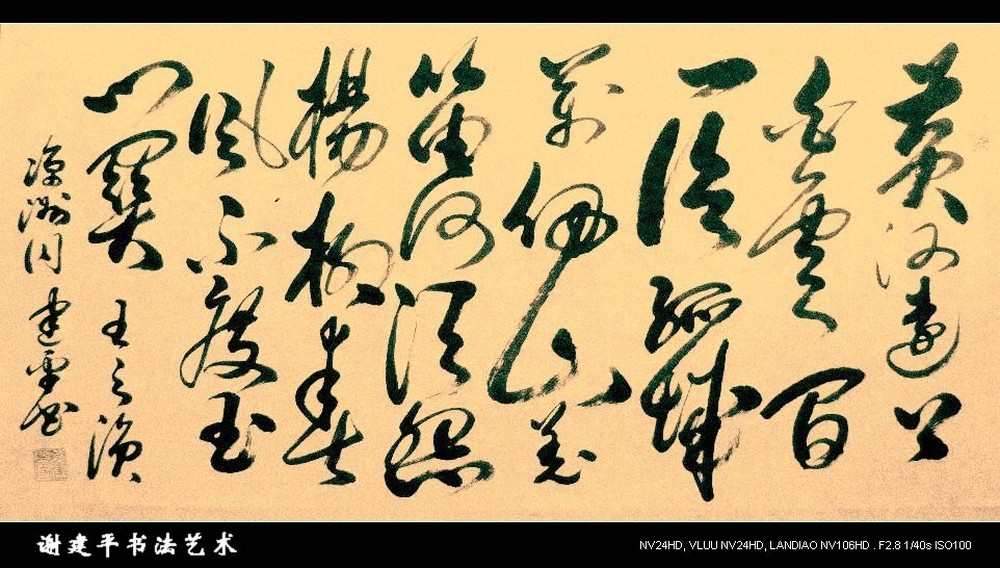 黃河遠上
白雲間
一片孤城
萬仞山羌
笛何須怨
楊柳春
風不度玉
門關 王之渙
涼州詞 建平書
谢建平书法艺术
NV24HD, VLUU NV24HD, LANDIAO NV106HD . F2.8 1/40s ISO100